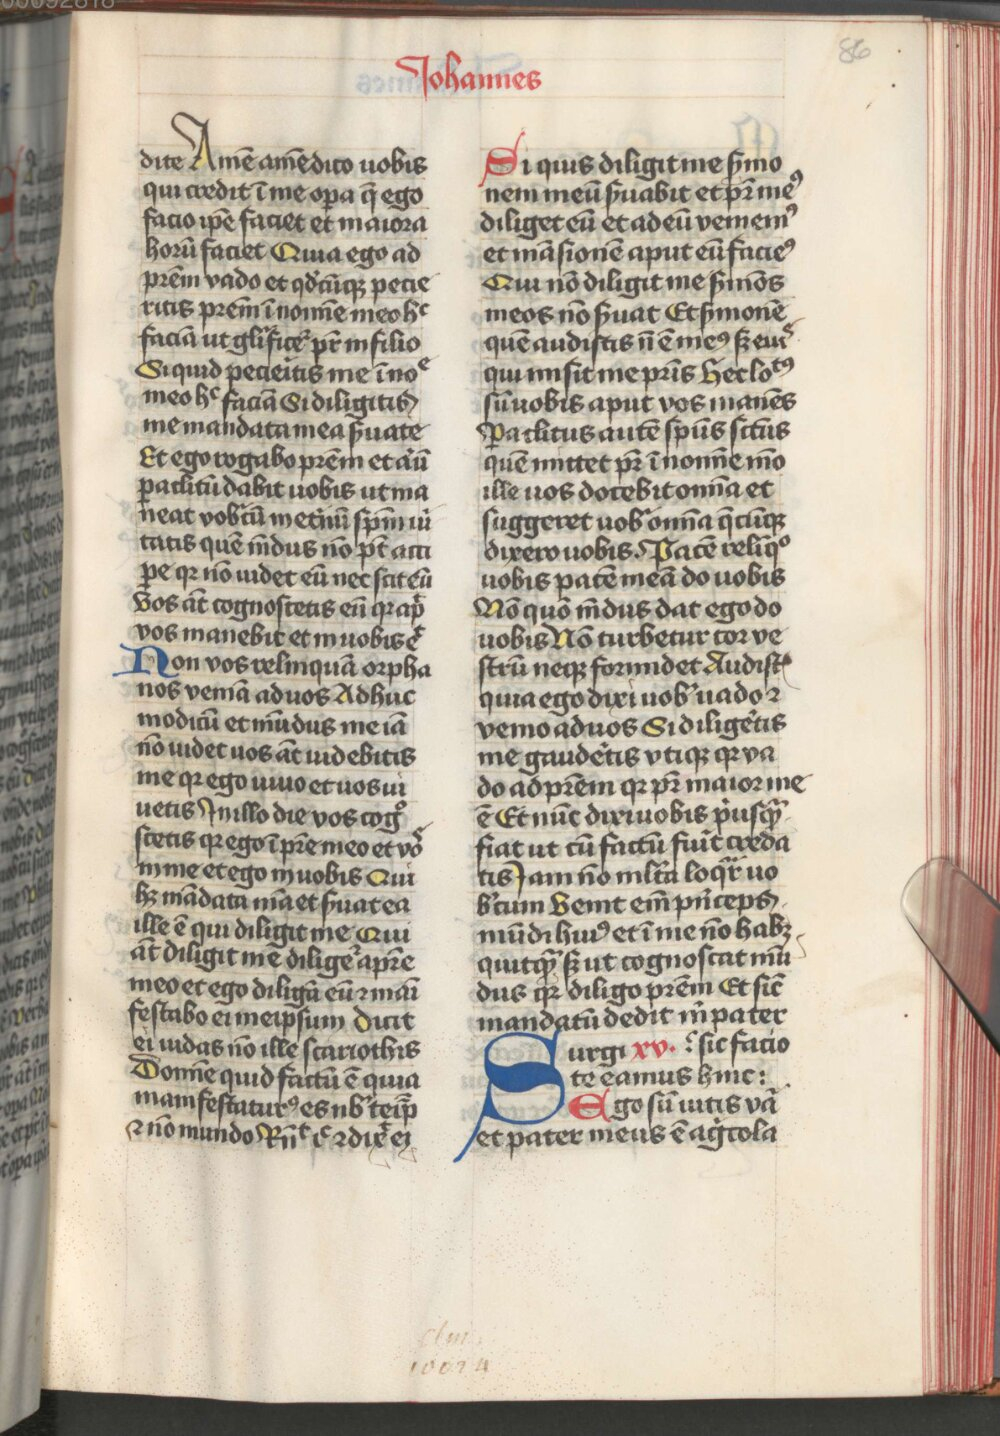 00092818
86
Johannes
dite Amē amē dico uobis
qui credit ī me opa q̄ ego
facio ip̄e faciet et maiora
horū faciet Quia ego ad
prēm vado et qd̄cūqꝫ pecie
ritis prēm ī nomīe meo hͨ
faciā ut glīficeꝰ pr̄ in filio
Si quid pecieritis me ī noͤ
meo hͨ faciā Si diligitis
me mandata mea ẜuate
Et ego rogabo prēm et aīū
paclitū dabit uobis ut ma
neat vobcū in etnū sp̄m ūi
tatis quē mūdus nō pt̄ acci
pe qꝛ nō uidet eū nec scit eū
Vos aūt cognoscetis eū qꝛ ap̄
vos manebit et in uobis ēͭ
Non vos relinquā orpha
nos veniā ad uos Adhuc
modicū et mūdus me iā
nō uidet uos aūt uidebitis
me qꝛ ego uiuo et uos ui
uetis In illo die vos cogͦ
scetis qꝛ ego ī pre meo et vōͦ
in me et ego in uobis Qui
hꝫ mādata mea et ẜuat ea
ille ē qui diligit me Qui
aūt diligit me diligeͭ a pre
meo et ego diligā eū ⁊ mai
festabo ei meipsum Dicit
ei iudas nō ille scariothis
Domīe quid factū ē quia
manifestaturꝰ es nb̄ teip̄
⁊ nō mundo Rn̄ͭ ēͭ ⁊ dixͭ ei
Si quis diligit me ẜmo
nem meū ẜuabit et pr̄ meꝰ
diliget eū et ad eū veniemꝰ
et māsionē aput eū facieꝰ
Qui nō diligit me ẜmōs
meos nō ẜuat Et ẜmonē
quē audistis n̄ ē meꝰ sꝫ eiuͤ
qui misit me pris Hec lotꝰ
sū uobis aput vos manēs
Paclitus autē sp̄us sctūs
quē mittet pr̄ ī nomīe mo
ille uos docebit omīa et
suggeret uob omīa q̄cūqꝫ
dixero uobis. Pacē relīqͦ
uobis pacē meā do uobis
Nō quō mūdus dat ego do
uobis Nō turbetur cor ve
strū neqꝫ formidet Audistͥ
quia ego dixi uob uado ⁊
venio ad uos Si diligētis
me gaudētis vtiqꝫ qꝛ va
do ad prēm qꝛ pr̄ maior me
ē Et nūc dixi uobis pusqᷓ
fiat ut cū factū fuīt creda
tis Jam nō mltā loqꝛ uo
bcum Venit enī pnceps
mūdi huiꝰ et ī me nō habꝫ
quitqᷓ sꝫ ut cognoscat mū
dus qꝛ diligo prēm Et sic̄
mandatū dedit m̄ pater
Surgi xv. sic facio
te eamus hinc:
Ego sū uitis vā
et pater meus ē agcola
clm.
10024